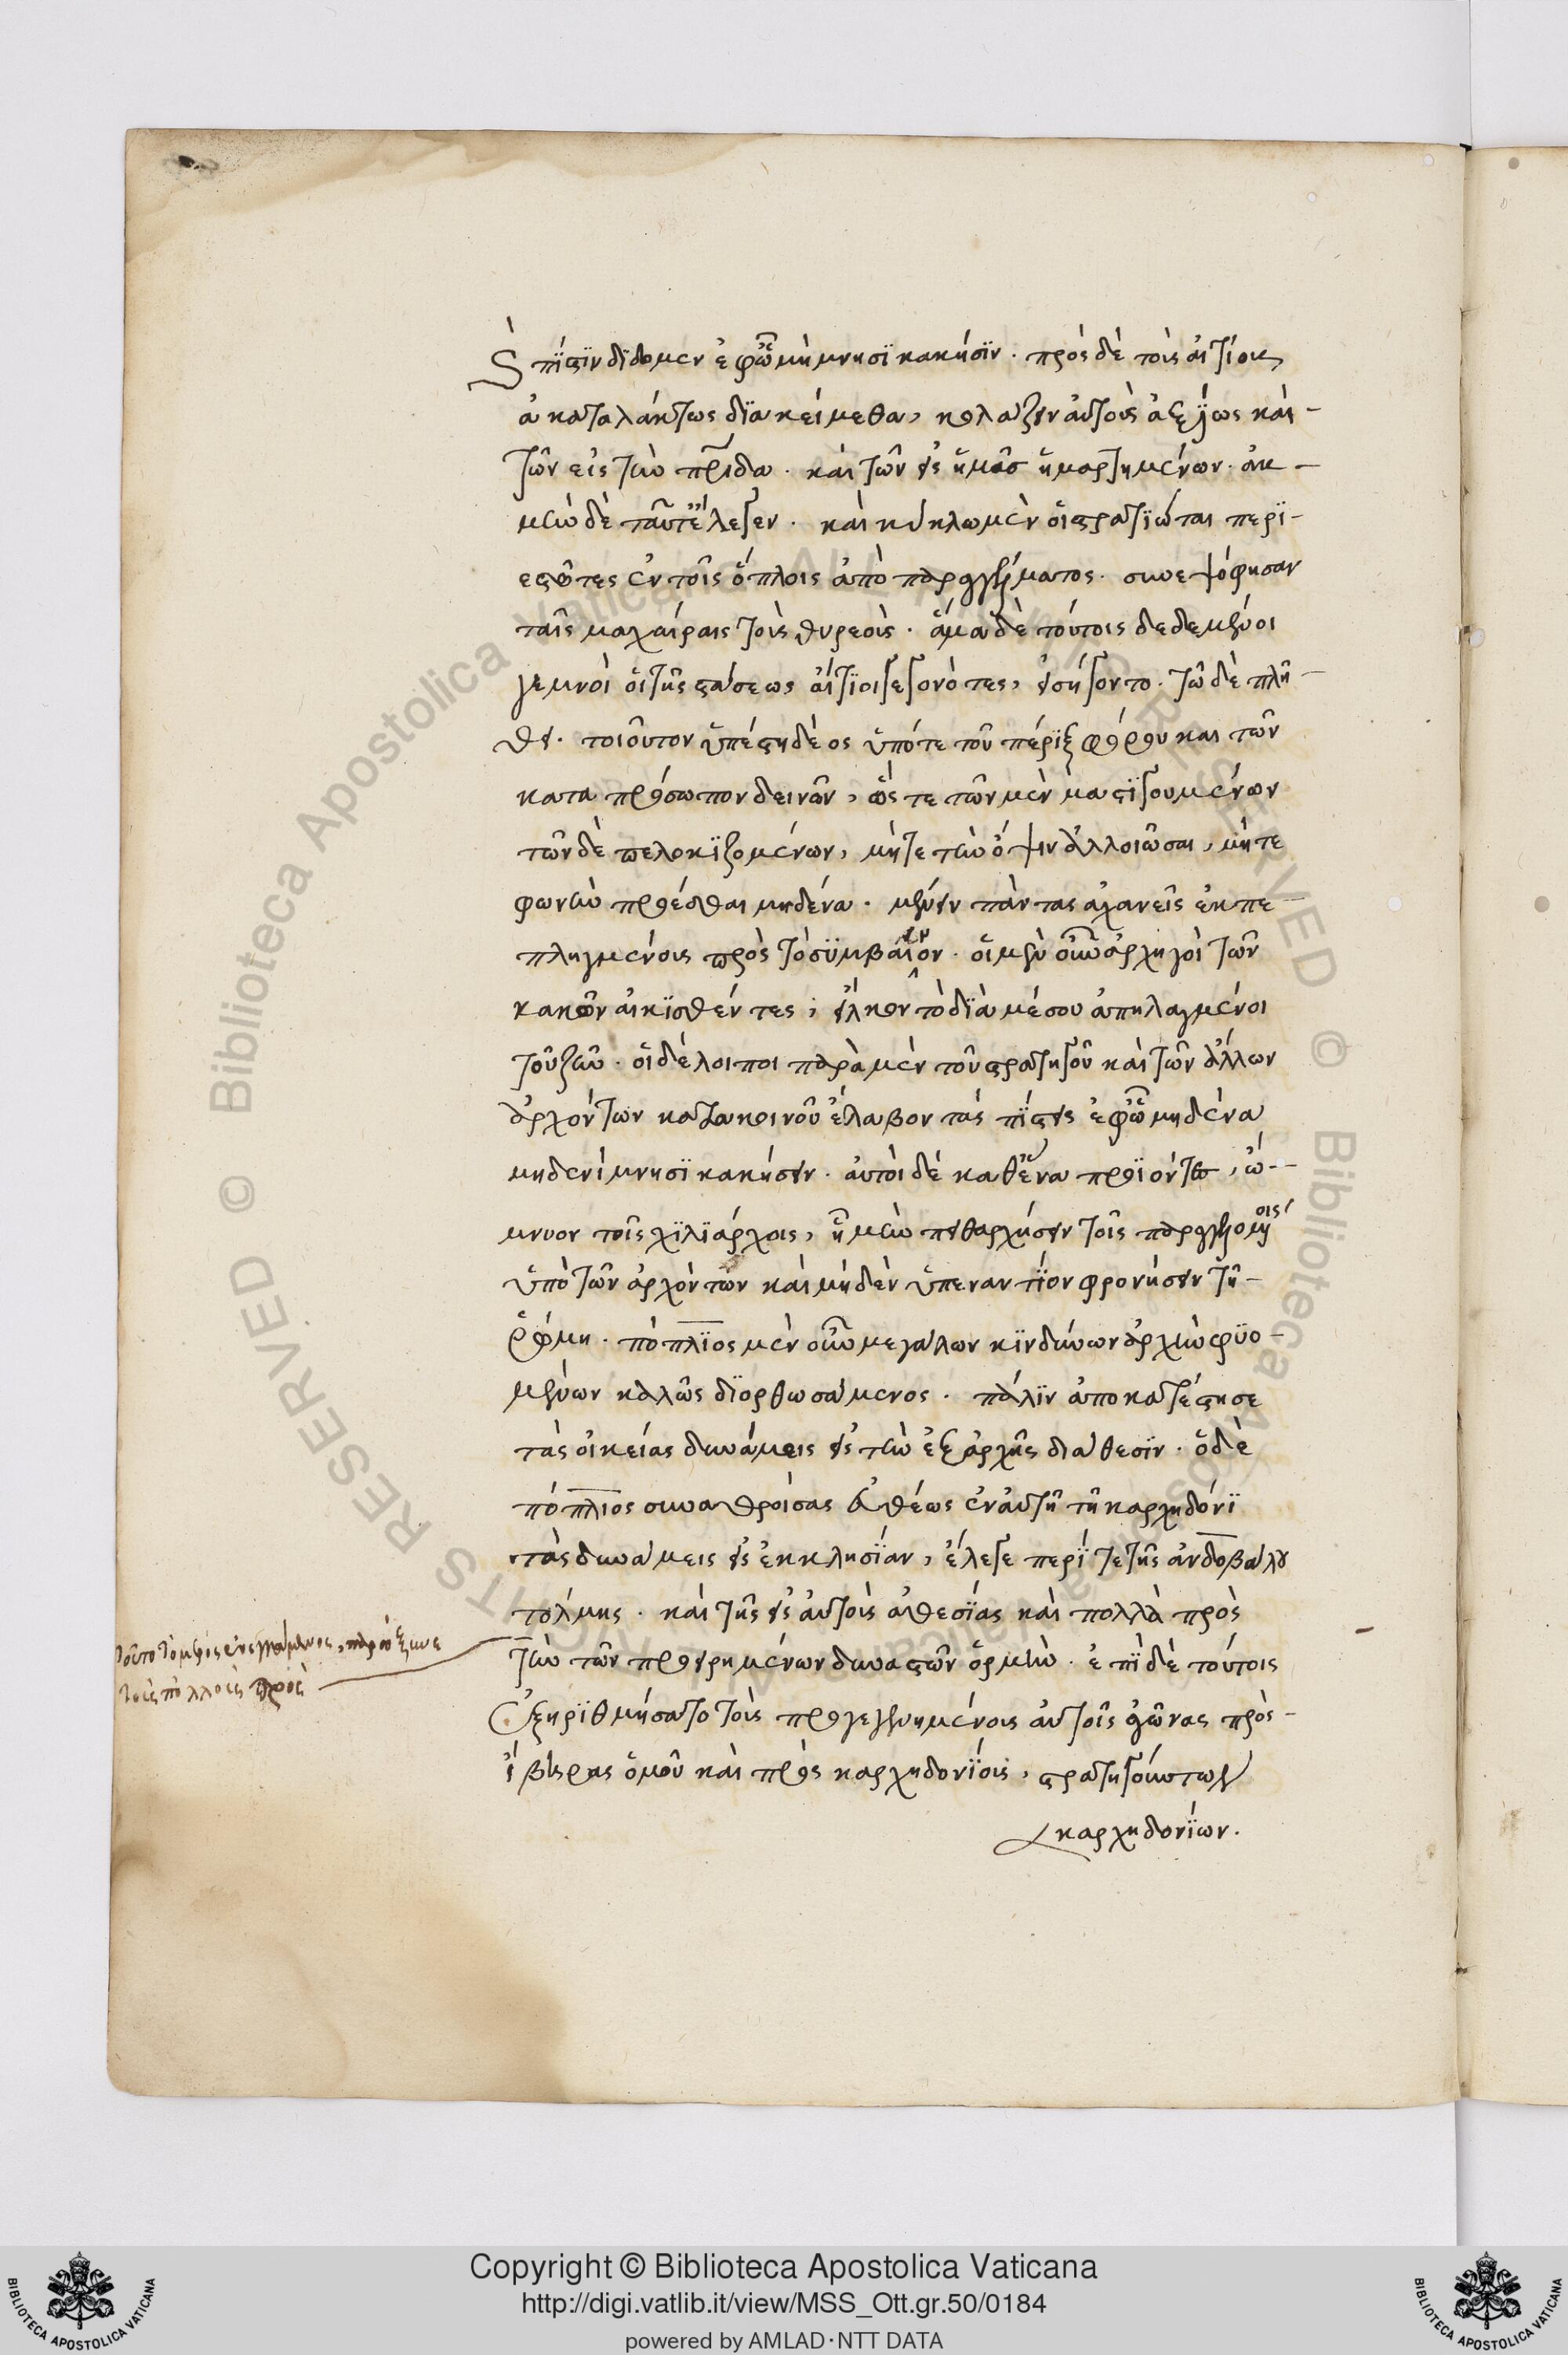 καὶ πίστιν δίδομεν ἐφ' ᾧ μὴ μνησικακήσιν. πρὸς δὲ τοὺς αἰτίους
ἀκαταλάκτως διακείμεθα, κολάζειν αὐτοὺς ἀξίως καὶ -
τῶν εἰς τὴν πρίδα. καὶ τῶν εἰς ἡμᾶς ἡμαρτημένων. ἀκ -
μὴν δὲ ταῦτ' ἔλεγεν. καὶ κύκλω μὲν οἱ στρατιῶται περι -
εστῶτες ἐν τοῖς ὅπλοις ἀπὸ παραγγέλματος. συνεψόφησαν
ταῖς μαχαίραις τοὺς θυρεούς. ἅμα δὲ τούτοις δεδεμένοι
γεμνοὶ οἱ τῆς στάσεως αἴτιοι γεγονότες, εἰσήγοντο. τῶ δὲ πλή -
θει. τοιοῦτον ὑπέστη δέος ὑπό τε τοῦ πέριξ φόβου καὶ τῶν
κατα πρόσωπον δεινῶν, ὥστε τῶν μὲν μαστιγουμένων
τῶν δὲ πελεκιζομένων, μήτε τὴν ὄψιν ἀλλοιῶσαι, μήτε
φωνὴν προέσθαι μηδένα. μένειν πάντας ἀχανεῖς ἐκπε
πληγμένους πρὸς τὸ συμβαῖνον. οἱ μὲν οὖν ἀρχηγοὶ τῶν
κακῶν αἰκισθέντες, εἵλκον τὸ διὰ μέσου ἀπηλαγμένοι
τοῦ ζῆν. οἱ δέ λοιποι παρὰ μὲν τοῦ στρατηγοῦ καὶ τῶν ἄλλων
ἀρχόντων κατα κοινοῦ ἔλαβον τὰς πίστεις ἐφ' ᾧ μηδένα
μηδενὶ μνησικακήσειν. αὐτοὶ δὲ καθ' ἕνα προϊόντες, ὤ -
μνυον τοῖς χιλιάρχοις, ἦ μὴν πειθαρχήσειν τοῖς παραγγελομένοις
ὑπὸ τῶν ἀρχόντων καὶ μηδὲν ὑπεναντίον φρονήσειν τῆ -
ῥώμη. πόπλιος μὲν οὖν μεγάλων κινδύνων ἀρχὴν φυο -
μένων καλῶς διορθωσάμενος. πάλιν ἀποκατέστησε
τὰς οἰκείας δυνάμεις εἰς τὴν ἐξ ἀρχῆς διάθεσιν. ὁ δὲ
πόπλιος συναθροίσας εὐθέως ἐν αὐτῆ τῆ καρχηδόνι
τὰς δυνάμεις εἰς ἐκκλησίαν, ἔλεγε περί τε τῆς ἀνδοβάλου
τόλμης. καὶ τῆς εἰς αὐτοὺς ἀθεσίας καὶ πολλὰ πρὸς
τὴν τῶν προειρημένων δυναστῶν ὁρμήν. ἐπὶ δὲ τούτοις
ἐξηριθμήσατο τοὺς προγεγενημένους αὐτοῖς ἀγῶνας πρὸς -
ἴβηρας ὁμοῦ καὶ πρὸς καρχηδονίους, στρατηγούντων
καρχηδονίων.
τοῦτο τὸ μέρος ἀπεγνάμενος, παρώξυνε
τοὺς πολλοὺς πρὸς
Copyright © Biblioteca Apostolica Vaticana
http://digi.vatlib.it/view/MSS_Ott.gr.50/0184
powered by AMLAD·NTT DATA